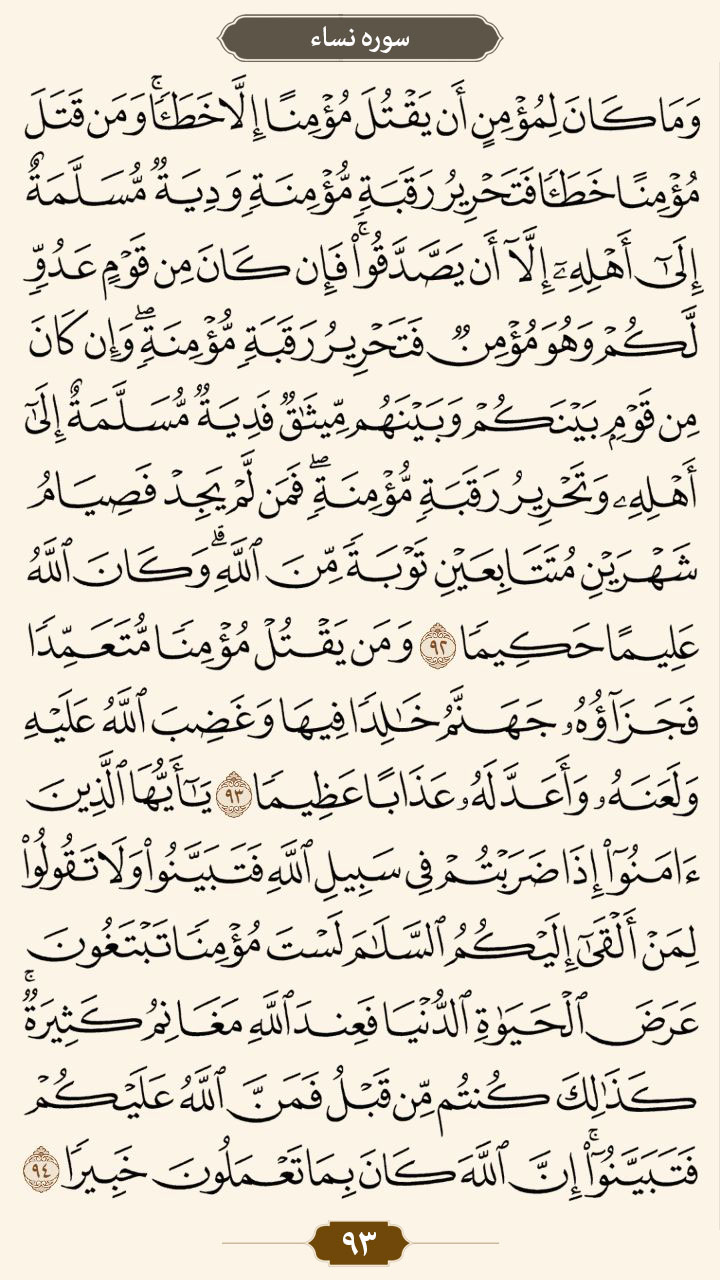 سوره نساء
وَمَا كَانَ لِمُؤْمِنٍ أَن يَقْتُلَ مُؤْمِنًا إِلَّا خَطَـًٔا ۚ وَمَن قَتَلَ
مُؤْمِنًا خَطَـًٔا فَتَحْرِيرُ رَقَبَةٍ مُّؤْمِنَةٍ وَدِيَةٌ مُّسَلَّمَةٌ
إِلَىٰٓ أَهْلِهِۦٓ إِلَّآ أَن يَصَّدَّقُوا۟ ۚ فَإِن كَانَ مِن قَوْمٍ عَدُوٍّ
لَّكُمْ وَهُوَ مُؤْمِنٌ فَتَحْرِيرُ رَقَبَةٍ مُّؤْمِنَةٍ ۖ وَإِن كَانَ
مِن قَوْمٍۭ بَيْنَكُمْ وَبَيْنَهُم مِّيثَـٰقٌ فَدِيَةٌ مُّسَلَّمَةٌ إِلَىٰٓ
أَهْلِهِۦ وَتَحْرِيرُ رَقَبَةٍ مُّؤْمِنَةٍ ۖ فَمَن لَّمْ يَجِدْ فَصِيَامُ
شَهْرَيْنِ مُتَتَابِعَيْنِ تَوْبَةً مِّنَ ٱللَّهِ ۗ وَكَانَ ٱللَّهُ
عَلِيمًا حَكِيمًا ٩٢ وَمَن يَقْتُلْ مُؤْمِنًا مُّتَعَمِّدًا
فَجَزَآؤُهُۥ جَهَنَّمُ خَـٰلِدًا فِيهَا وَغَضِبَ ٱللَّهُ عَلَيْهِ
وَلَعَنَهُۥ وَأَعَدَّ لَهُۥ عَذَابًا عَظِيمًا ٩٣ يَـٰٓأَيُّهَا ٱلَّذِينَ
ءَامَنُوٓا۟ إِذَا ضَرَبْتُمْ فِى سَبِيلِ ٱللَّهِ فَتَبَيَّنُوا۟ وَلَا تَقُولُوا۟
لِمَنْ أَلْقَىٰٓ إِلَيْكُمُ ٱلسَّلَـٰمَ لَسْتَ مُؤْمِنًا تَبْتَغُونَ
عَرَضَ ٱلْحَيَوٰةِ ٱلدُّنْيَا فَعِندَ ٱللَّهِ مَغَانِمُ كَثِيرَةٌ ۚ
كَذَٰلِكَ كُنتُم مِّن قَبْلُ فَمَنَّ ٱللَّهُ عَلَيْكُمْ
فَتَبَيَّنُوٓا۟ ۚ إِنَّ ٱللَّهَ كَانَ بِمَا تَعْمَلُونَ خَبِيرًا ٩٤
٩٣